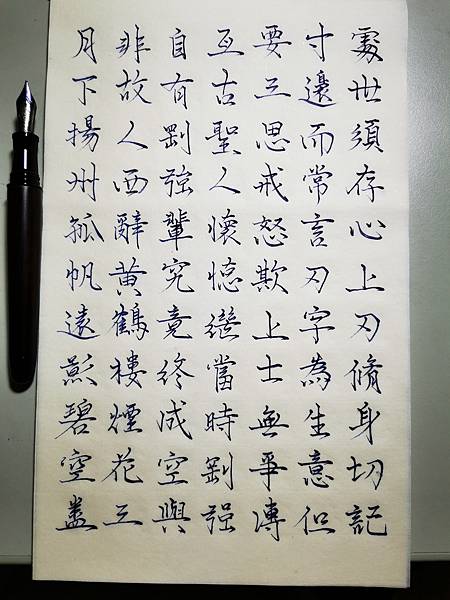 處世須存心上刃脩身切記
寸邊而常言刃字為生意但
要三思戒怒欺上士無爭傳
亙古聖人懷德繼當時剛強
自有剛強輩究竟終成空與
非故人西辭黃鶴樓煙花三
月下揚州孤帆遠影碧空盡